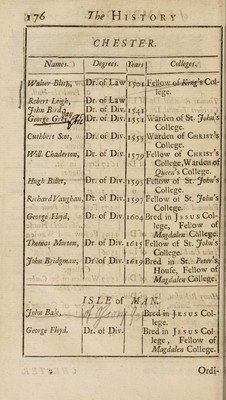 176 The HISTORY
CHESTER.
Names. Degrees. Years Colleges.
Walter Blith, Dr. of Law 1503 Fellow of King's Col-
lege.
Robert Leigh, Dr. of Law
John Bird, Dr. of Div. 1541
George Dr. of Div. 1554 Warden of St. John's
College.
Cuthbert Scot, Dr. of Div. 1555 Warden of CHRIST's
College.
Will. Chaderton, Dr. of Div. 1579 Fellow of CHRIST's
College, Warden of
Queen's College.
Hugh Billet, Dr. of Div. 1595 Fellow of St. John's
College.
Richard Vaughan, Dr. of Div. 1597 Fellow of St. John's
College.
George Floyd, Dr. of Div. 1604 Bred in JESUS Col-
lege, Fellow of
Magdalen College.
Thomas Morton, Dr. of Div. 1615 Fellow of St. John's
College.
John Bridgman, Dr. of Div. 1619 Bred in St. Peter's
House, Fellow of
Magdalen College.
ISLE of MAN.
John Bale. Bred in JESUS Col-
lege.
George Floyd. Dr. of Div. Bred in JESUS Col-
lege, Fellow of
Magdalen College.
Ordi-